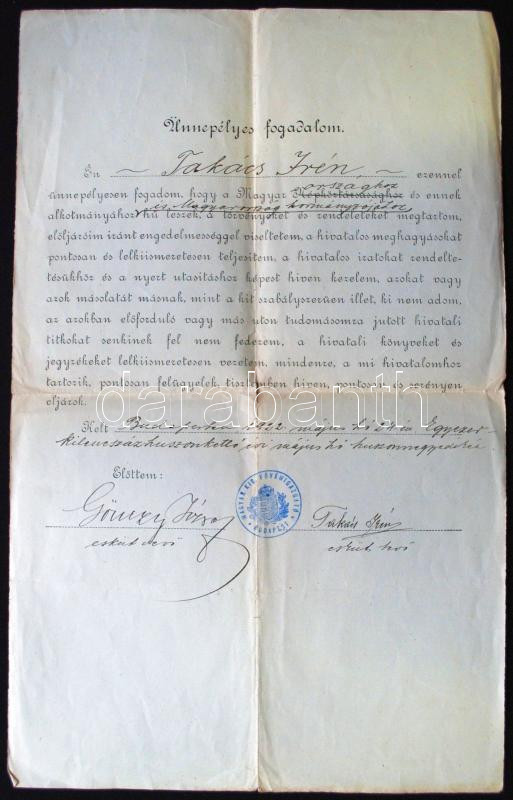 Ünnepélyes fogadalom.
Én ~ Takács Irén, ~ ezennel
országhoz
ünnepélyesen fogadom, hogy a Magyar Népköztársasághoz és ennek
és Magyarország kormányzójához
alkotmányához hű leszek, a törvényeket és rendeleteket megtartom,
előljáróim iránt engedelmességgel viseltetem, a hivatalos meghagyásokat
pontosan és lelkiismeretesen teljesítem, a hivatalos iratokat rendelte-
tésükhöz és a nyert utasításhoz képest híven kezelem, azokat vagy
azok másolatát másnak, mint a kit szabályszerűen illet, ki nem adom,
az azokban előforduló vagy más uton tudomásomra jutott hivatali
titkokat senkinek fel nem fedezem, a hivatali könyveket és
jegyzékeket lelkiismeretesen vezetem, mindenre, a mi hivatalomhoz
tartozik, pontosan felügyelek, tisztemben híven, pontosan és serényen
eljárok.
Kelt Budapesten 1922 május hó 24-én Egyezer-
kilencszázhuszonkettő évi május hó huszonnegyedikén
Előttem:
MAGYAR KIR. BUDAPEST
Takács Irén
esküt vevő
esküt tevő
darabanth